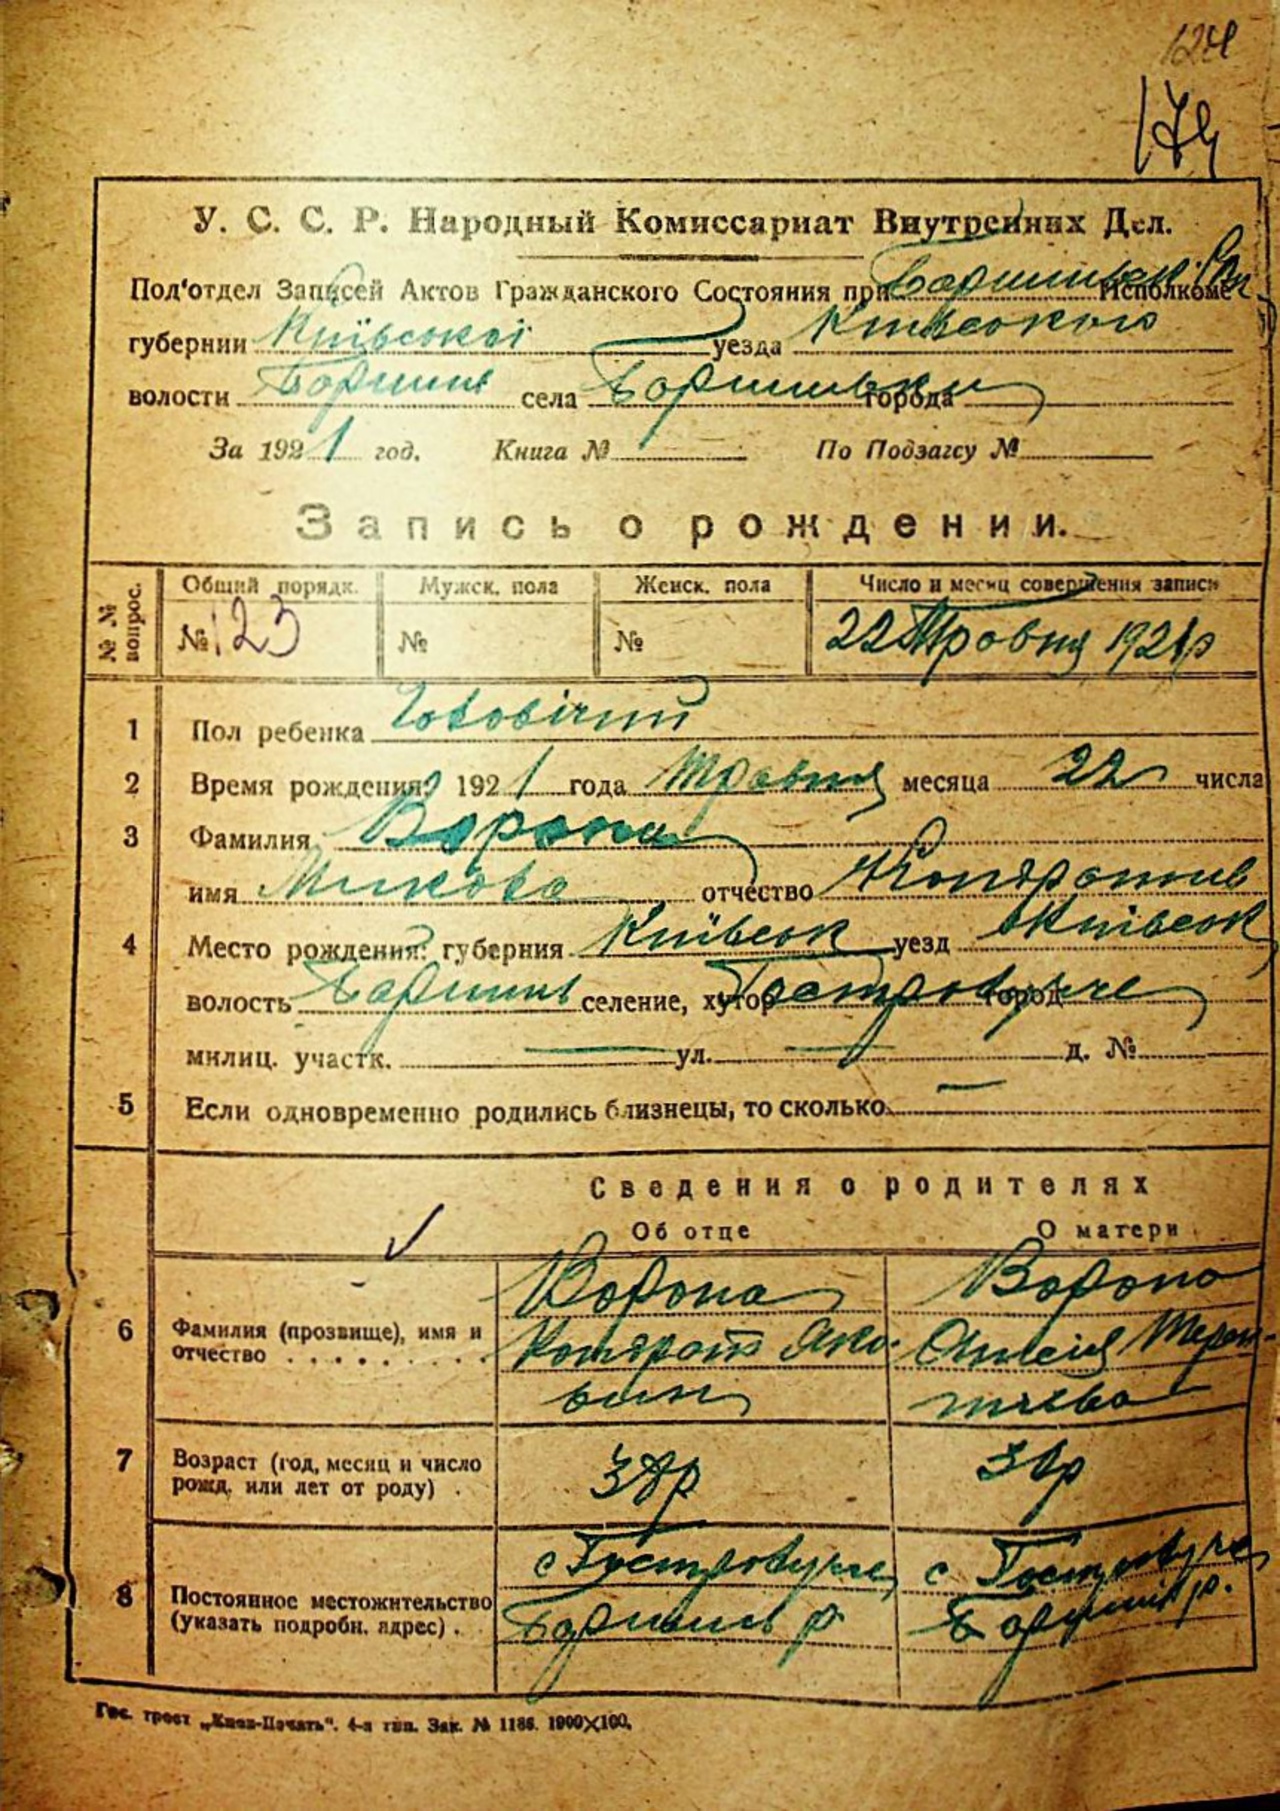 124
174
У. С. С. Р. Народный Комиссариат Внутренних Дел.
Под'отдел Записей Актов Гражданского Состояния при Исполкоме
губернии Київської уезда Київського
волости Баришів села Баришівки города
За 1921 год. Книга № По Подзагсу №
Запись о рождении.
№ № вопрос. Общий порядк. Мужск. пола Женск. пола Число и месяц совершения записи
№ 123 № № 22 Травня 1921 р
1 Пол ребенка Чоловічий
2 Время рождения: 1921 года Травня месяца 22 числа
3 Фамилия Ворона
имя Микола отчество Кондратів
4 Место рождения: губерния Київськ уезд Київськ
волость Баришів селение, хутор город
милиц. участк. — ул. — д. №
5 Если одновременно родились близнецы, то сколько —
Сведения о родителях
Об отце О матери
6 Фамилия (прозвище), имя и отчество Ворона Ворона
Кондрат Яко-
вич
7 Возраст (год, месяц и число рожд. или лет от роду)
8 Постоянное местожительство (указать подробн. адрес) с с
Баришів р Баришів р.
Гос. трест „Киев-Печать“. 4-я тип. Зак. № 1186. 1000×100.